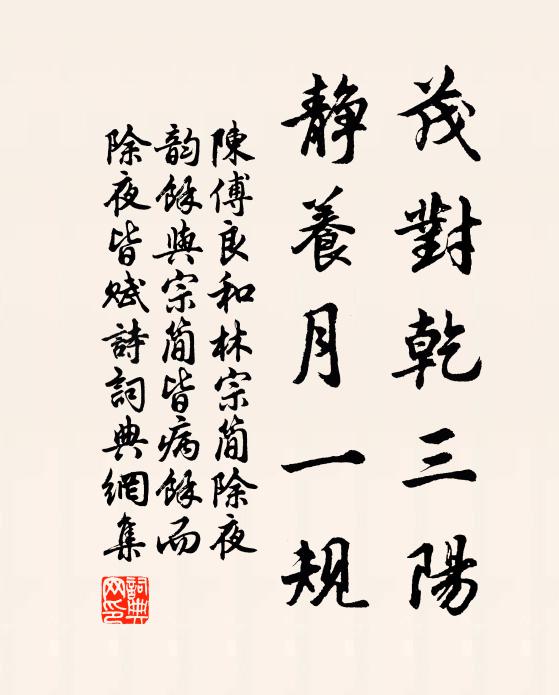 茂對乾三陽
靜養月一規
陳傅良和林宗簡除夜
韵餘與宗簡皆病餘而
除夜皆赋詩詞典網集
詞典網印